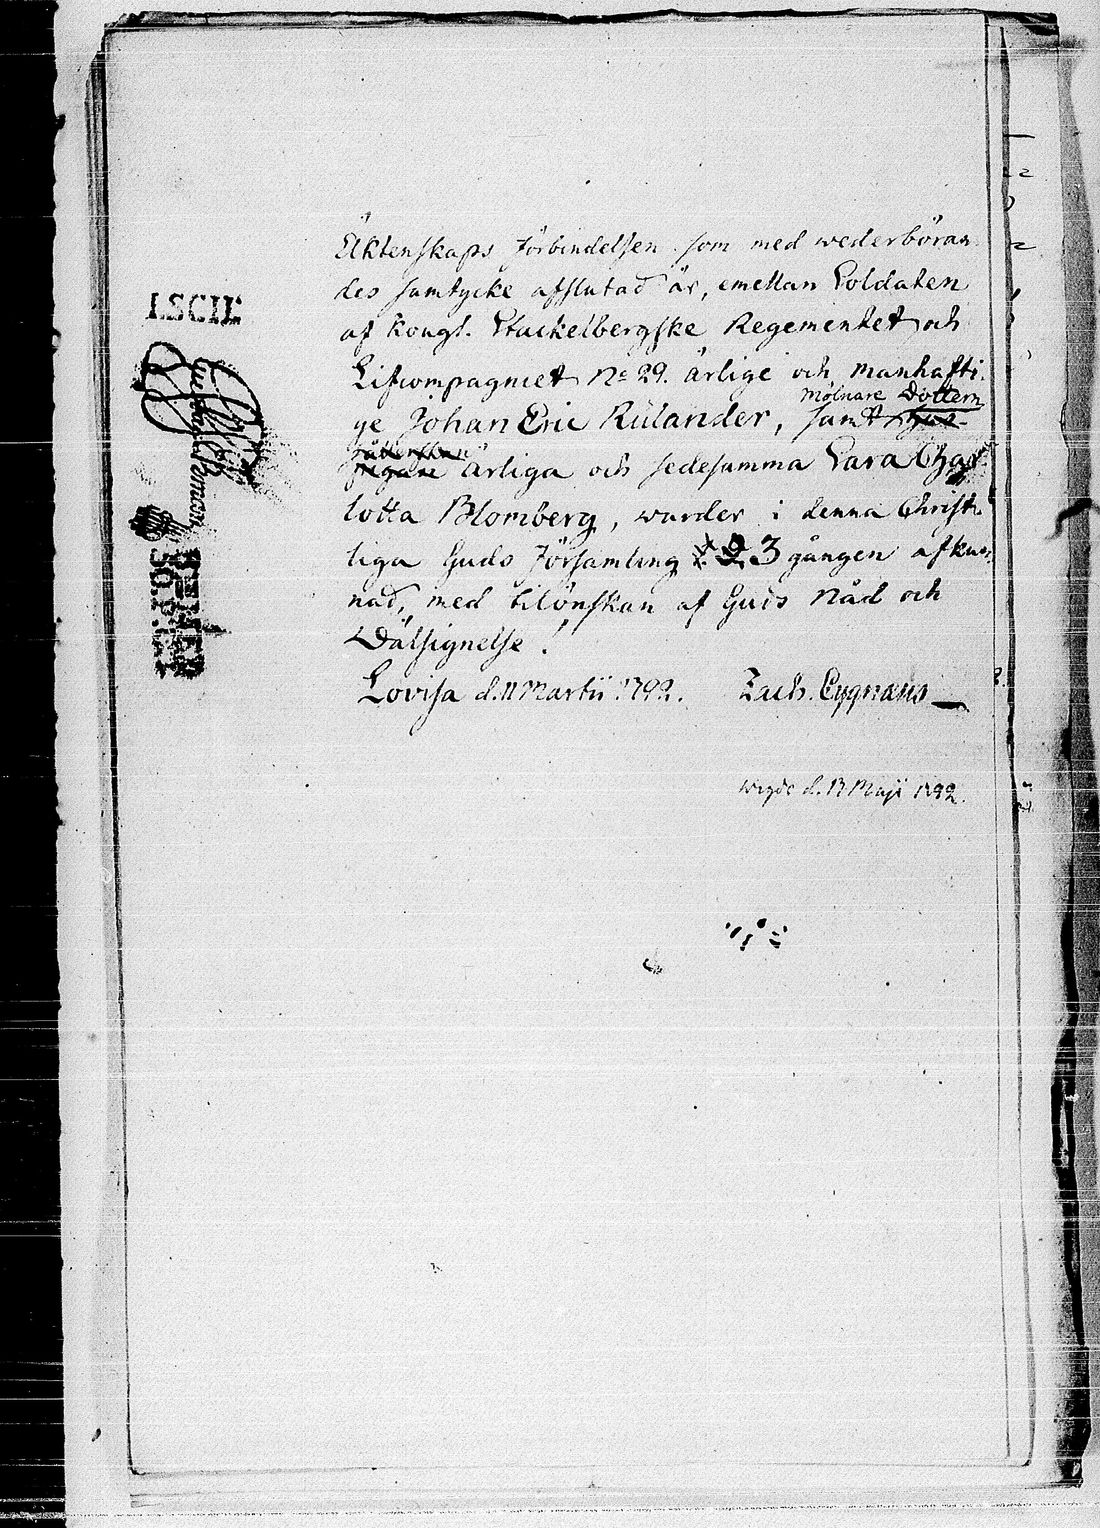 Äktenskaps Förbindelsen som med wederböran
des samtycke afslutad är, emellan Soldaten
af Kongl. Stackelbergske Regementet och
Lifcompagniet No 29. ärlige och manhafti
mölnare Dottern
ge Johan Eric Rülander, samt
ärliga och sedesamma Sara Char
lotta Blomberg, warder i denna Christe
liga Guds Församling 1. 2. 3 gången afkun
nad, med tilönskan af Guds Nåd och
Wälsignelse!
Lovisa d. 11 Martii 1792. Zach. Cygnæus
wigde d. 13 Maji 1792.